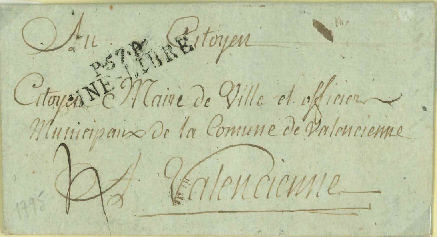 Au Citoyen
P.57.P.
UNE-LIBRE
Citoyen Maire de Ville et officier
Municipaux de la Comune de Valencienne
A
Valencienne
1795